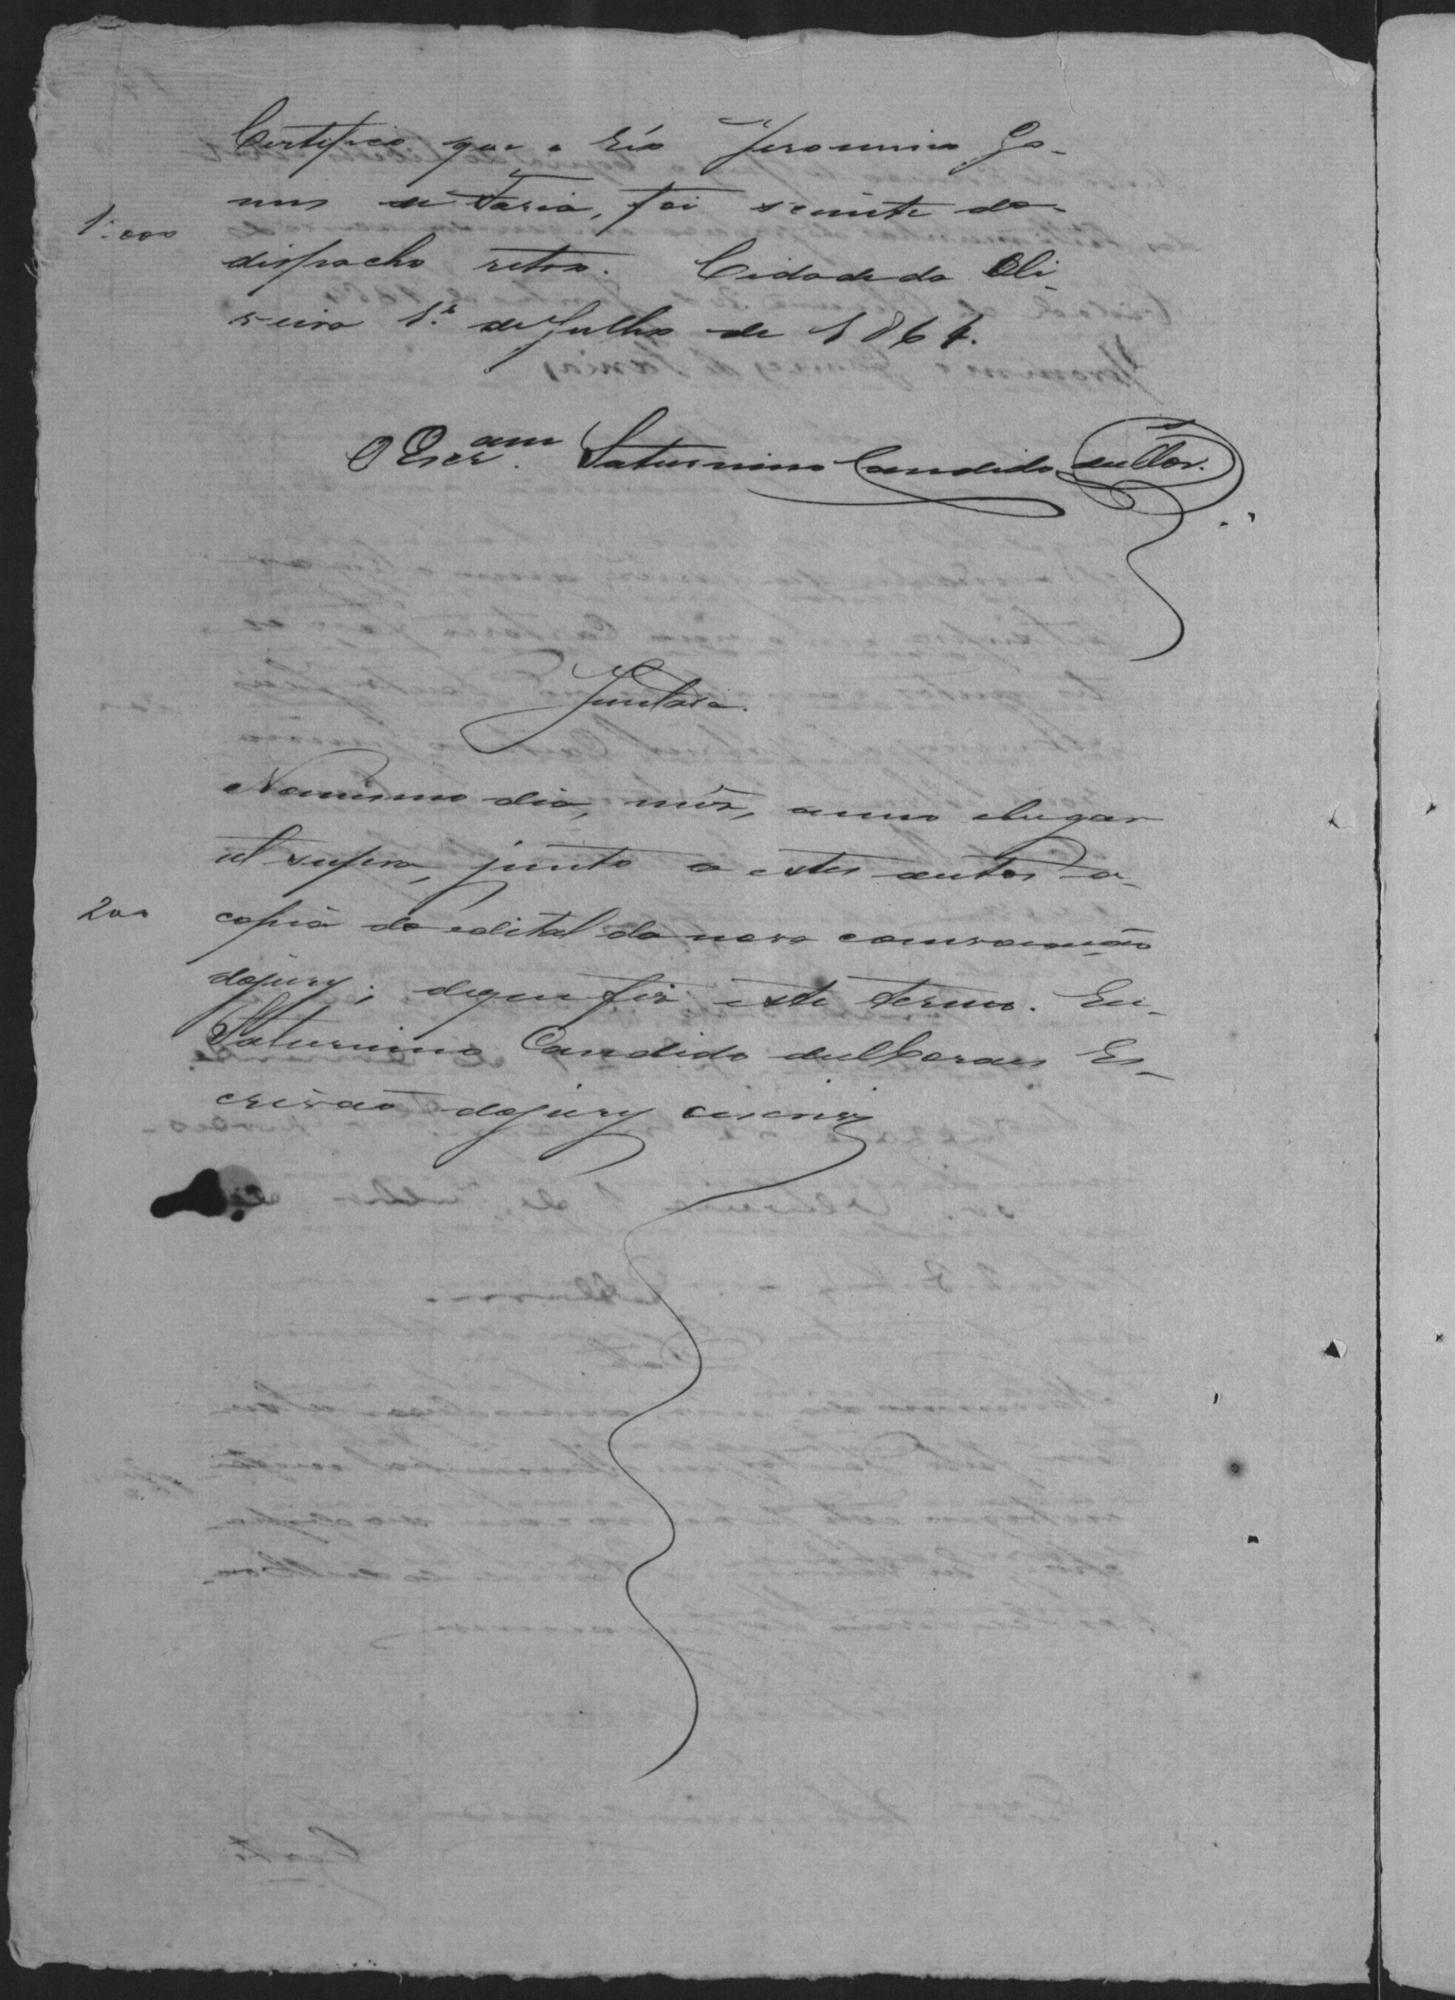 Certifico que o réo Jeronimo Go-
mes de Faria, foi sciente do
1:000
dispacho retro. Cidade da Oli-
veira 1º de Julho de 1864.
O Escr.am Saturnino Candido de Mor.s
Juntada.
No mesmo dia, mês, anno e lugar
ut supra, junto a estes autos a
200
copia do edital da nova convocação
do jury; do que fiz este termo. Eu
Saturnino Candido de Moraes Es-
crivão do jury escrevi